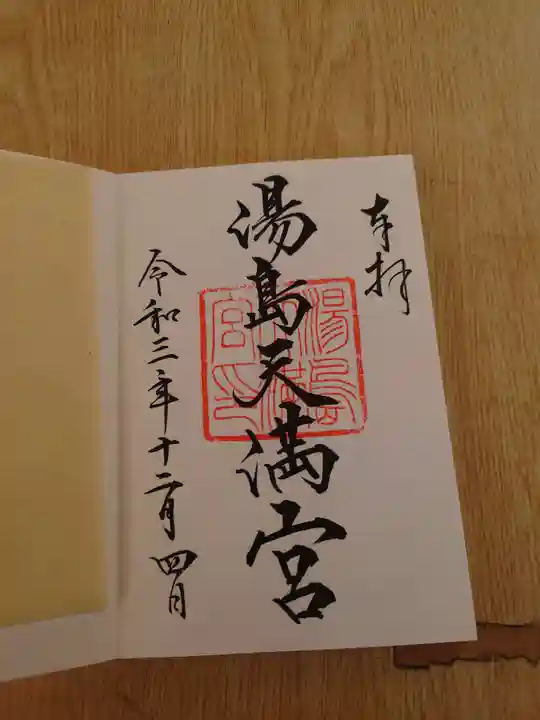 奉拝
湯島天満宮
令和三年十二月四日
湯島
天満
宮印